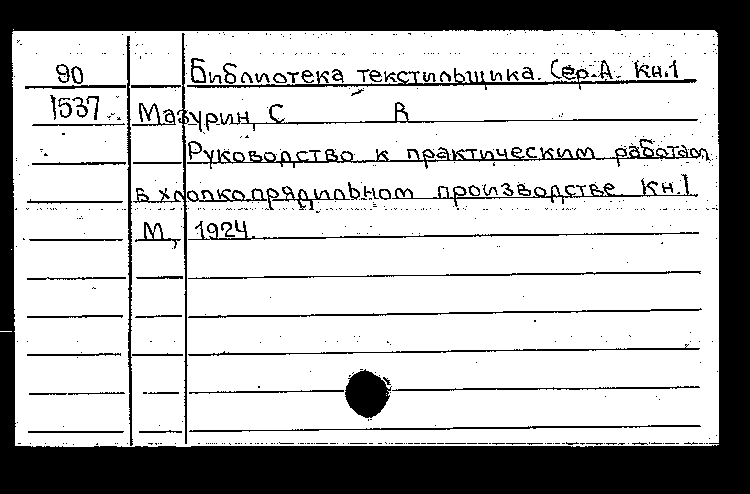 90 Библиотека текстильщика. Сер.А. Кн.1
1537 Мазурин, С В
Руководство к практическим работам
в хлопкопрядильном производстве. Кн.1
М, 1924.